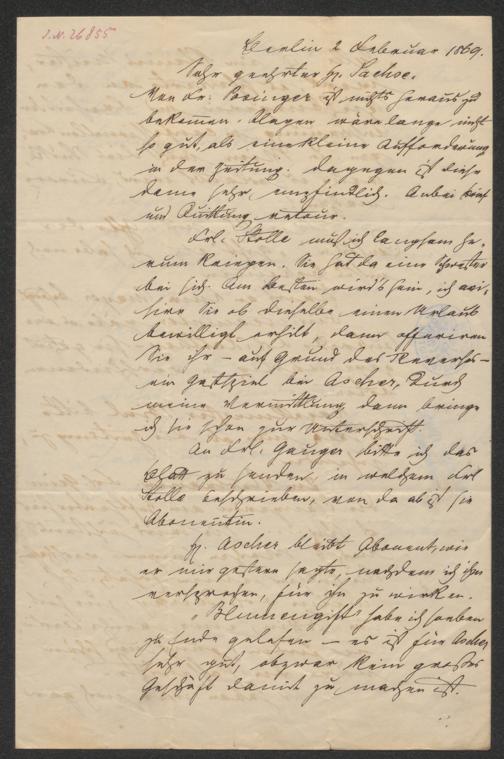 J.N. 26855
Berlin 2 Februar 1869.
Sehr geehrter Hr. Sachse.
Von Dr. Bosinger ist nichts heraus zu
bekomen. Klagen wäre lange nicht
so gut, als eine kleine Aufforderung
in der Zeitung. Dagegen ist diese
Dame sehr empfindlich. Anbei Brief
und Quittung retour.
Frl. Stolle muß ich langsam he-
rum kriegen. Sie hat da eine Schwester
bei sich. Am Besten wird's sein, ich avi-
sire Sie ob dieselbe einen Urlaub
bewilligt erhält, dann offeriren
Sie ihr – auf Grund des Reverses –
ein Gastspiel bei Ascher. Durch
meine Vermittlung dann bringe
ich sie schon zur Unterschrift.
An Frl. Gauger bitte ich das
Blatt zu senden in welchem Frl
Stolle beschrieben, von da ab ist sie
Abonentin.
Hr. Ascher bleibt Abonent, wie
er mir gestern sagte, nachdem ich ihm
versprochen, für ihn zu wirken.
"Blumengift" habe ich soeben
zu Ende gelesen – es ist für Ascher
sehr gut, obzwar kein großes
Geschäft damit zu machen ist.